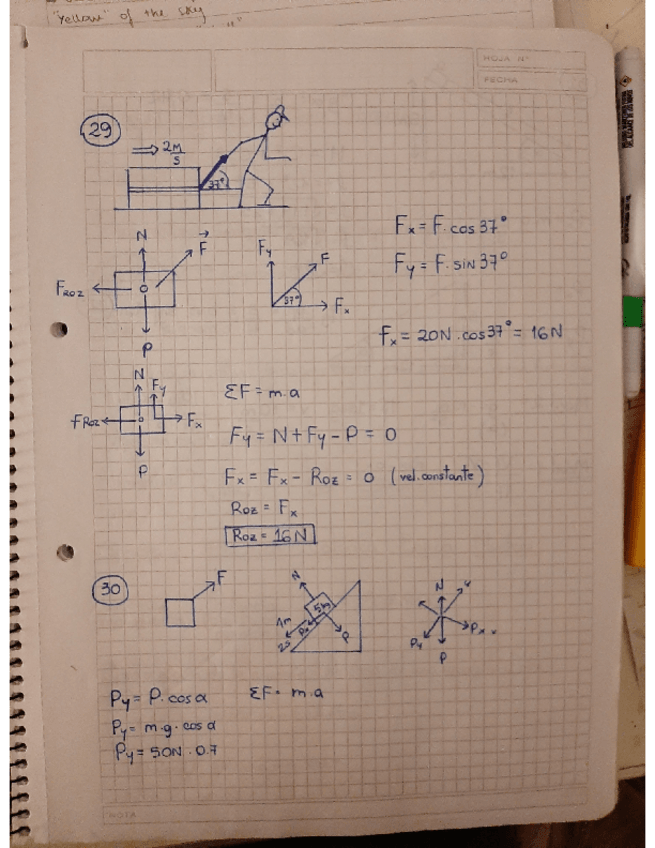 "Yellow" of the sky
HOJA N°
FECHA
29
⇒ 2 m/s
37°
N
F
F Roz
P
Fy
F
37°
Fx
Fx = F. cos 37°
Fy = F. sin 37°
Fx = 20N . cos 37° = 16N
N
Fy
F Roz
Fx
P
ΣF = m.a
Fy = N + Fy - P = 0
Fx = Fx - Roz = 0 (vel. constante)
Roz = Fx
Roz = 16N
30
F
N
5kg
1m
2s
Px
P
N
Px x
Py
P
Py = P. cos α
ΣF = m.a
Py = m.g. cos α
Py = 50N . 0.7
NOTA